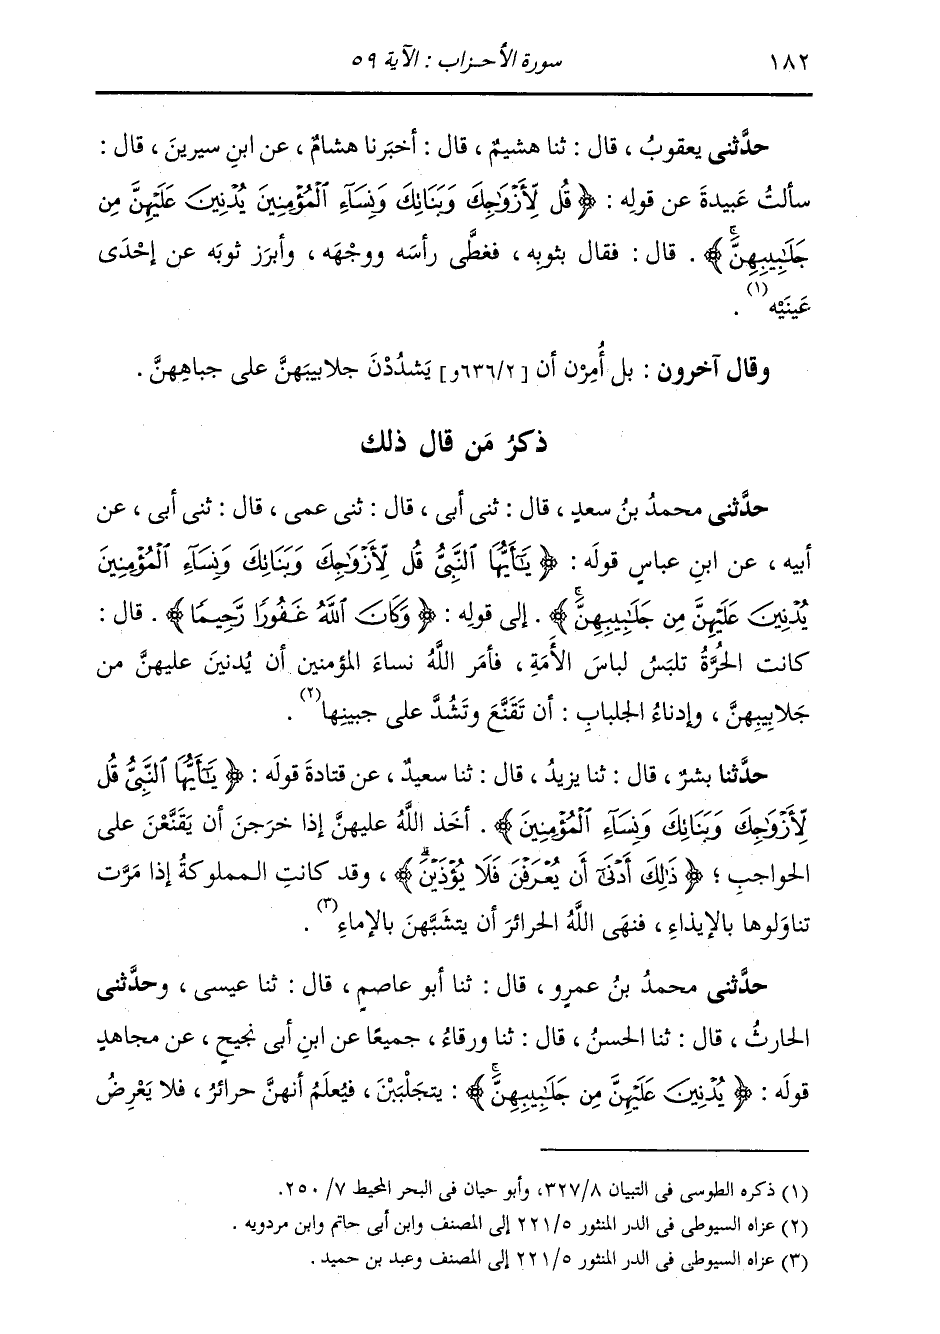 ١٨٢ سورة الأحزاب : الآية ٥٩
حدَّثنى يعقوبُ ، قال : ثنا هشيمٌ ، قال : أخبَرنا هشامٌ ، عن ابنِ سيرينَ ، قال :
سألتُ عَبيدةَ عن قولِه : ﴿ قُل لِّأَزْوَٰجِكَ وَبَنَائِكَ وَنِسَآءِ ٱلْمُؤْمِنِينَ يُدْنِينَ عَلَيْهِنَّ مِن
جَلَٰبِيبِهِنَّۚ ﴾ . قال : فقال بثوبِه ، فغطَّى رأسَه ووجْهَه ، وأبرَز ثوبَه عن إحْدَى
عَينَيْه(١) .
وقال آخرون : بل أُمِرْن أن [٦٣٦/٢و] يَشدُدْنَ جلابيبَهنَّ على جباهِهنَّ .
ذكرُ مَن قال ذلك
حدَّثنى محمدُ بنُ سعدٍ ، قال : ثنى أبى ، قال : ثنى عمى ، قال : ثنى أبى ، عن
أبيه ، عن ابنِ عباسٍ قولَه : ﴿ يَٰٓأَيُّهَا ٱلنَّبِىُّ قُل لِّأَزْوَٰجِكَ وَبَنَائِكَ وَنِسَآءِ ٱلْمُؤْمِنِينَ
يُدْنِينَ عَلَيْهِنَّ مِن جَلَٰبِيبِهِنَّۚ ﴾ . إلى قولِه : ﴿ وَكَانَ ٱللَّهُ غَفُورًا رَّحِيمًا ﴾ . قال :
كانت الحُرَّةُ تلبَسُ لباسَ الأَمَةِ ، فأمَر اللَّهُ نساءَ المؤمنين أن يُدنينَ عليهنَّ من
جَلابِيبِهنَّ ، وإدناءُ الجلبابِ : أن تَقَنَّعَ وتَشُدَّ على جبينِها(٢) .
حدَّثنا بشرٌ ، قال : ثنا يزيدُ ، قال : ثنا سعيدٌ ، عن قتادةَ قولَه : ﴿ يَٰٓأَيُّهَا ٱلنَّبِىُّ قُل
لِّأَزْوَٰجِكَ وَبَنَائِكَ وَنِسَآءِ ٱلْمُؤْمِنِينَ ﴾ . أخَذ اللَّهُ عليهنَّ إذا خرَجنَ أن يَقَنَّعْنَ على
الحواجبِ ؛ ﴿ ذَٰلِكَ أَدْنَىٰٓ أَن يُعْرَفْنَ فَلَا يُؤْذَيْنَۗ ﴾ ، وقد كانتِ المملوكةُ إذا مَرَّت
تناوَلوها بالإيذاءِ ، فنهَى اللَّهُ الحرائرَ أن يتشبَّهنَ بالإماءِ(٣) .
حدَّثنى محمدُ بنُ عمرٍو ، قال : ثنا أبو عاصمٍ ، قال : ثنا عيسى ، وحدَّثنى
الحارثُ ، قال : ثنا الحسنُ ، قال : ثنا ورقاءُ ، جميعًا عن ابنِ أبى نجيحٍ ، عن مجاهدٍ
قولَه : ﴿ يُدْنِينَ عَلَيْهِنَّ مِن جَلَٰبِيبِهِنَّۚ ﴾ : يتجلْبَبْنَ ، فيُعلَمُ أنهنَّ حرائرُ ، فلا يَعْرِضُ
(١) ذكره الطوسى فى التبيان ٣٢٧/٨، وأبو حيان فى البحر المحيط ٧/ ٢٥٠.
(٢) عزاه السيوطى فى الدر المنثور ٢٢١/٥ إلى المصنف وابن أبى حاتم وابن مردويه .
(٣) عزاه السيوطى فى الدر المنثور ٢٢١/٥ إلى المصنف وعبد بن حميد .